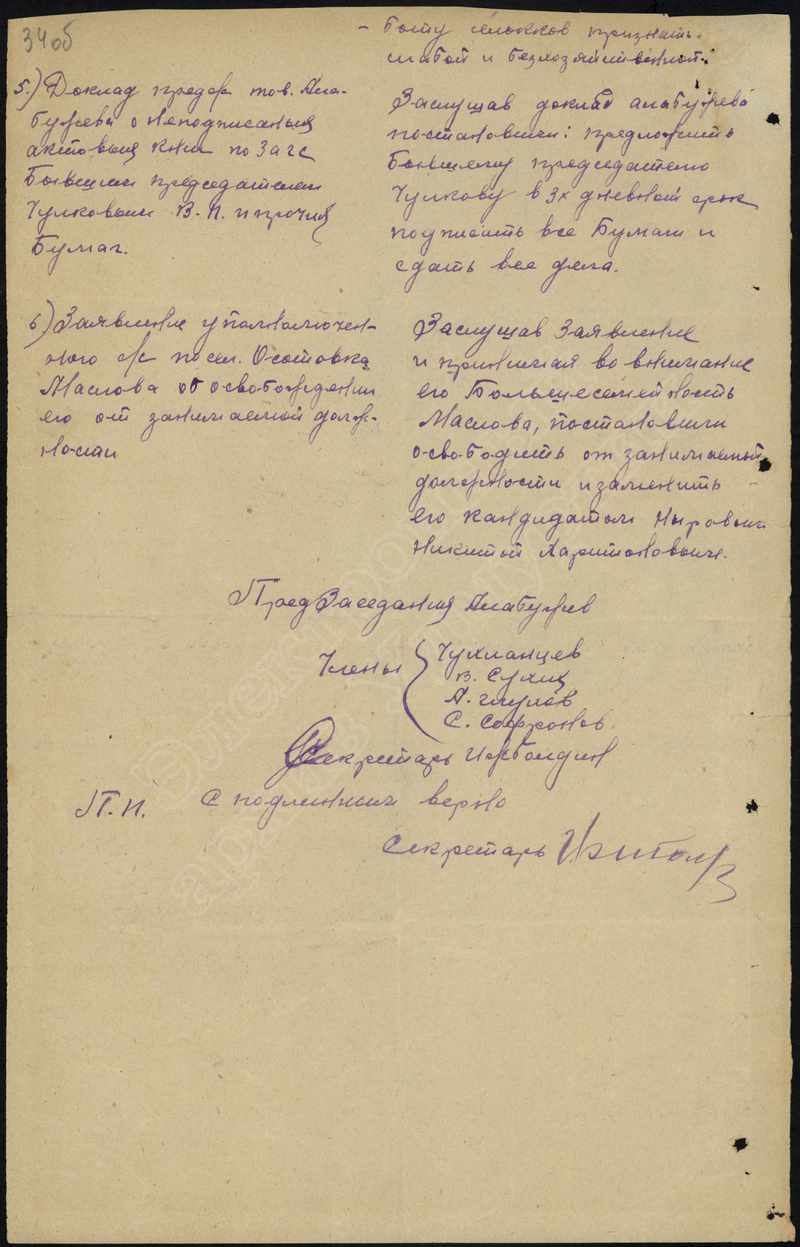 34 об
- боту сельков признать
слабой и безхозяйственной.
5.) Доклад предс/с тов. Ала-
бужева о неподписаныя
актовыя книг по Загс
Бывшим председателем
Чулковым В. П. и прочия
Бумаг.
Заслушав доклад алабужева
постановили: предложить
Бывшему председателю
Чулкову в 3х дневной срок
подписать все Бумаги и
сдать все дела.
6) Заявление уполномочен-
ного с/с посел. Осотовка
Маслова об освобождении
его от занимаемой долж-
ности
Заслушав Заявление
и принимая во внимание
его Большесемейность
Маслова, постановили
освободить от занимаемой
должности и заменить
его кандидатом Ныровым
Никитой Харитоновым.
Пред Заседания Алабужев
Члены
Чухланцев
В. Сухих
А. Глухов
С. Софронов
Секретарь
П. П. С подлинным верно
Секретарь